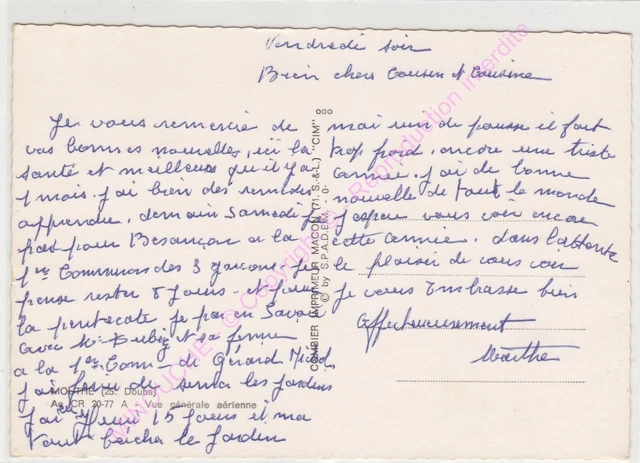 Vendredi soir
Bien chers Cousin et Cousine
Je vous remercie de
vos bonnes nouvelles, ici la
santé est meilleure qu'il y a
1 mois. j'ai bien des remèdes
apprendre. demain Samedi je
pars pour Besançon a la
1re Communion des 3 garçons je
pense rester 8 jours - et puis
la pentecote je pars en Savoie
avec Mr et sa femme
a la 1re Com - de Gérard
j'ai fini de semer les jardins
j'ai eu 15 jours et ma
bêcher le jardin
mai rien ne pousse il fait
trop froid. encore une triste
année. j'ai de bonne
nouvelle de tout le monde
j'espère vous voir encore
cette année. dans l'attente
le plaisir de vous voir
je vous Embrasse bien
Affectueusement
Marthe
COMBIER IMPRIMEUR MACON (71. S.-&-L.) "CIM"
© by S.P.A.D.E.M.
MOUTHE (25. Doubs)
As CR 20-77 A - Vue générale aérienne
© Copyright - Reproduction interdite